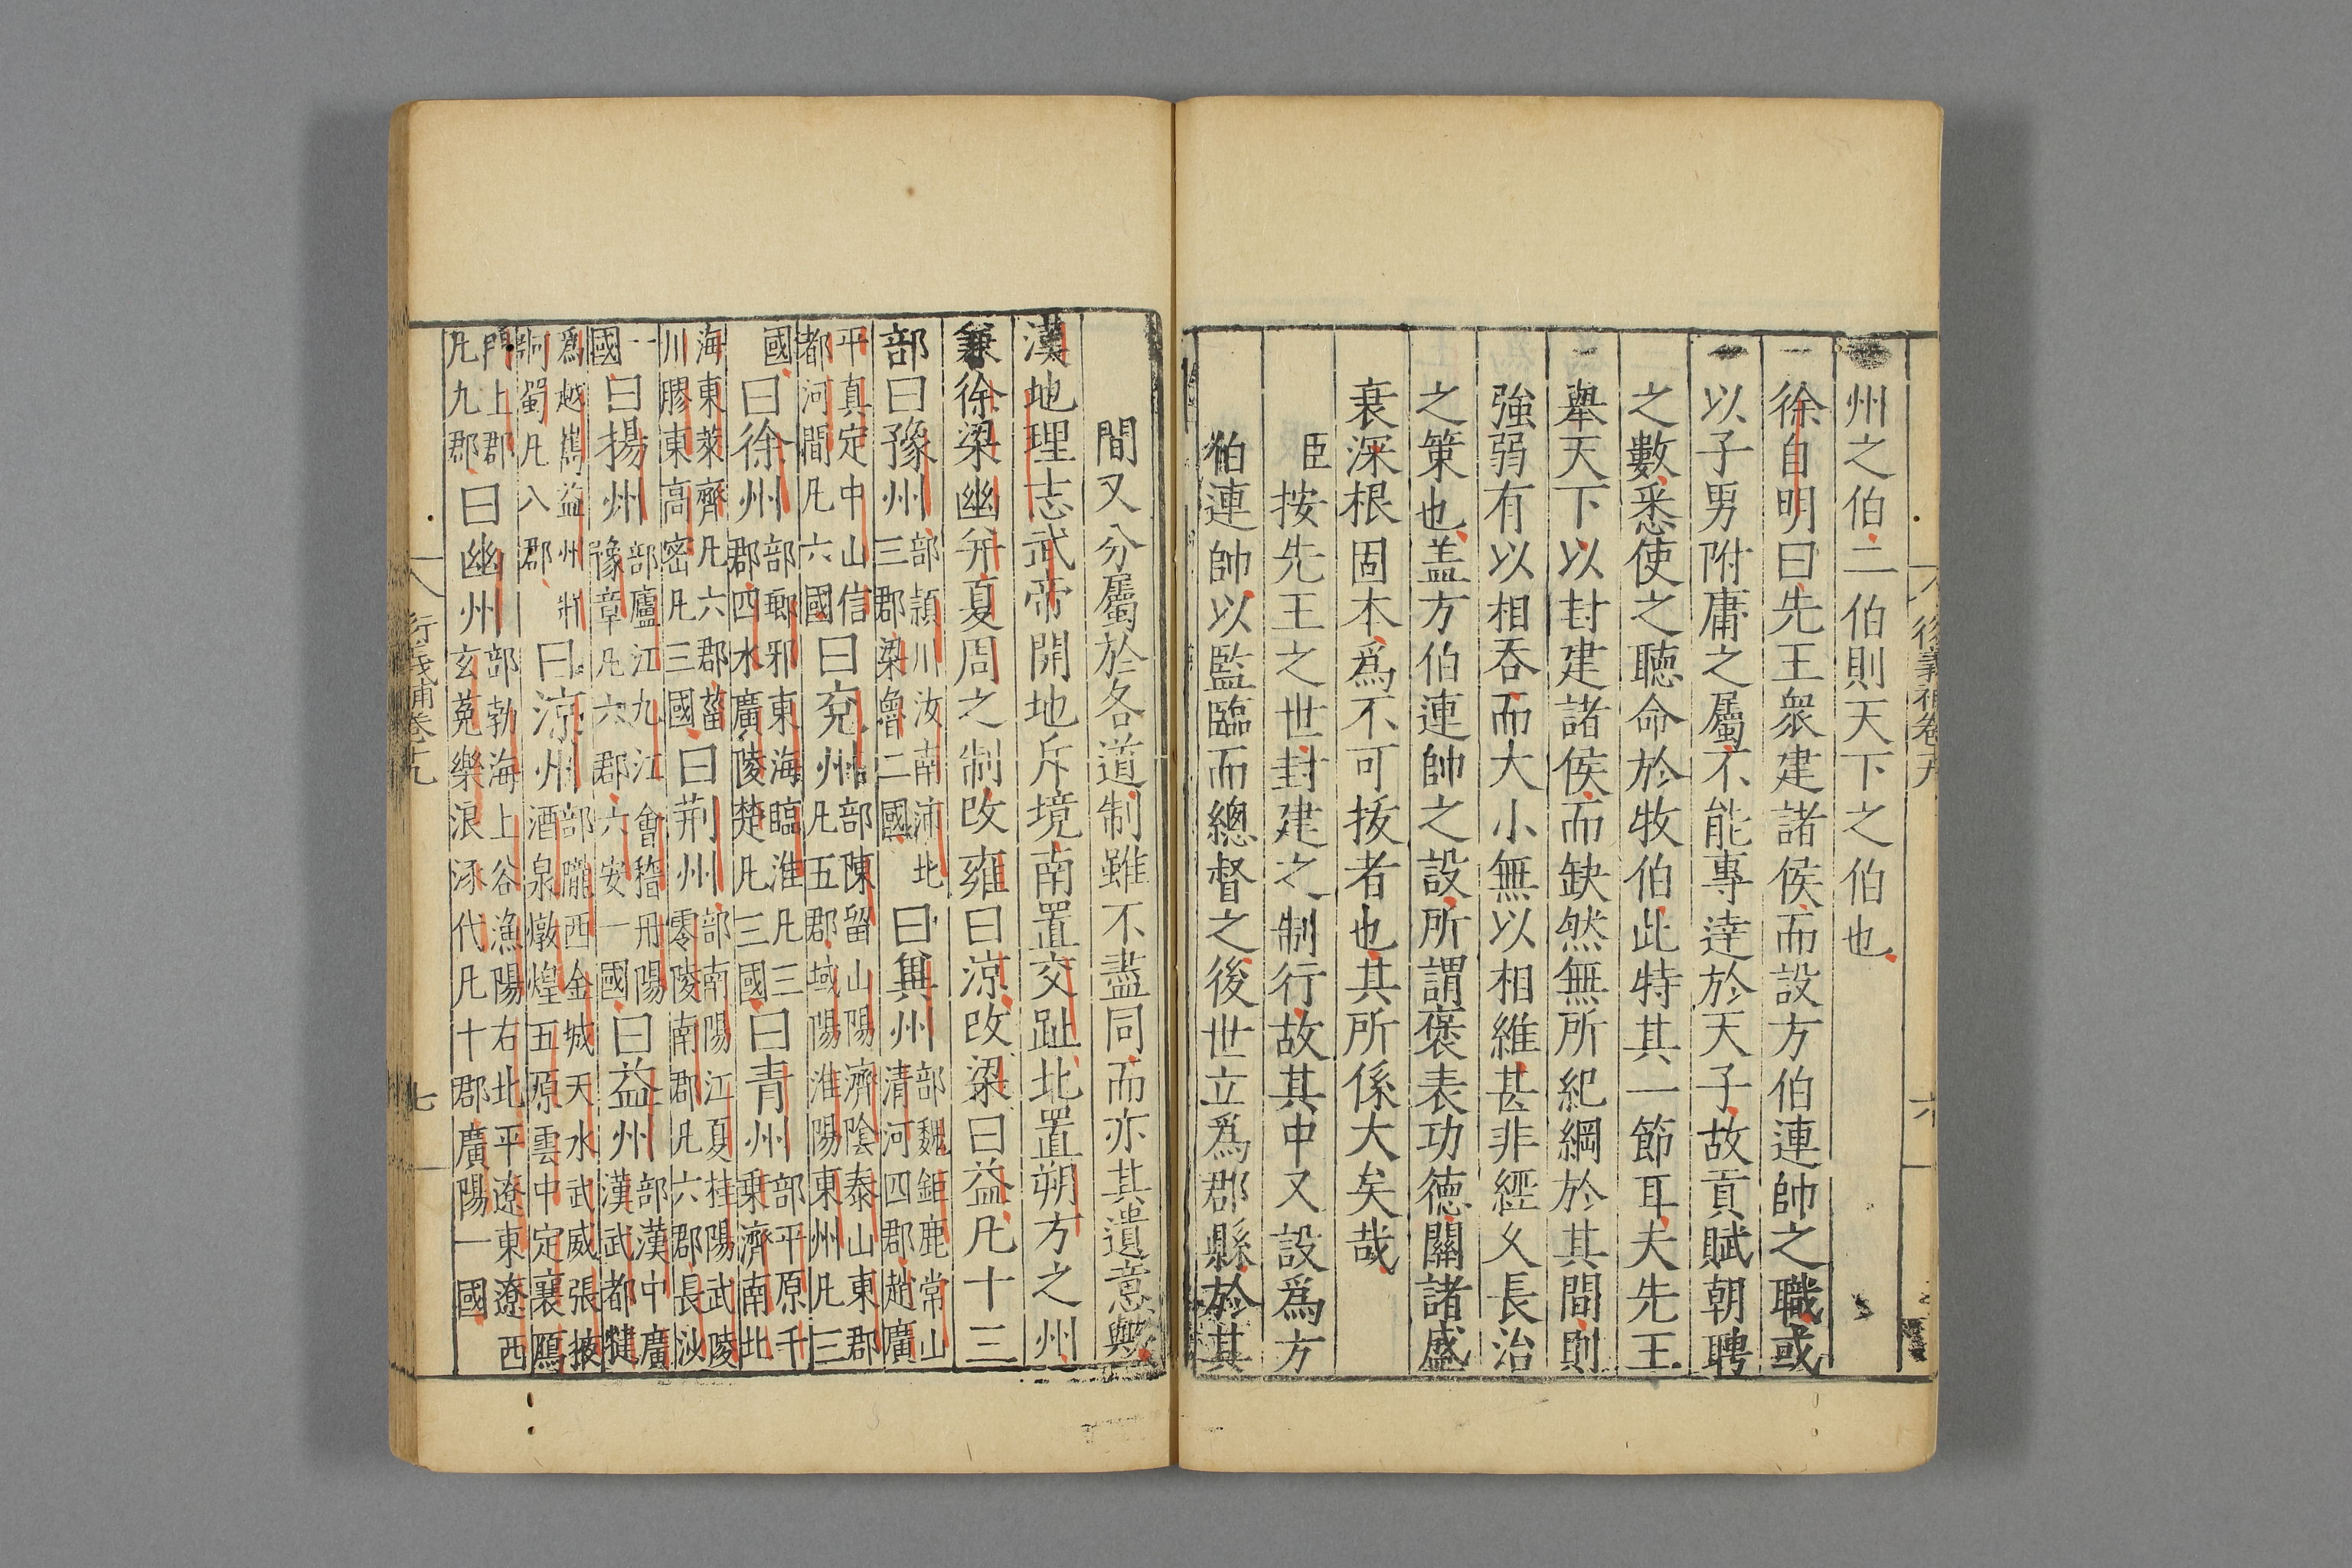 州之伯二伯則天下之伯也
徐自明曰先王衆建諸侯而設方伯連帥之職或
以子男附庸之屬不能專逹於天子故貢賦朝聘
之數悉使之聴命於牧伯此特其一節耳夫先王
舉天下以封建諸侯而缺然無所紀綱於其間則
強弱有以相吞而大小無以相維甚非經久長治
之策也盖方伯連帥之設所謂褒表功德關諸盛
衰深根固本爲不可拔者也其所係大矣哉
臣按先王之世封建之制行故其中又設爲方
伯連帥以監臨而總督之後世立爲郡縣於其
間又分屬於各道制雖不盡同而亦其遺意歟
漢地理志武帝開地斥境南置交趾北置朔方之州
兼徐梁幽并夏周之制改雍曰涼改梁曰益凡十三
部曰豫州部頴川汝南沛北三郡梁魯二國曰兾州部魏鉅鹿常山清河四郡趙廣
平真定中山信都河間凡六國曰兖州部陳留山陽濟陰泰山東郡凡五郡域陽淮陽東州凡三
國曰徐州部琅邪東海臨淮凡三郡四水廣陵楚凡三國曰青州部平原千乗濟南北
海東萊齊凡六郡菑川膠東高密凡三國曰荆州部南陽江夏桂陽武陵零陵南郡凡六郡長沙
一國曰揚州部廬江九江會稽丹陽豫章凡六郡六安一國曰益州部漢中廣漢武都犍
爲越嶲益州牂牁蜀凡八郡曰涼州部隴西金城天水武威張掖酒泉燉煌五原雲中定襄鴈
門上郡凡九郡曰幽州部勃海上谷漁陽右北平遼東遼西玄莵樂浪涿代凡十郡廣陽一國
衍義補卷十九
七